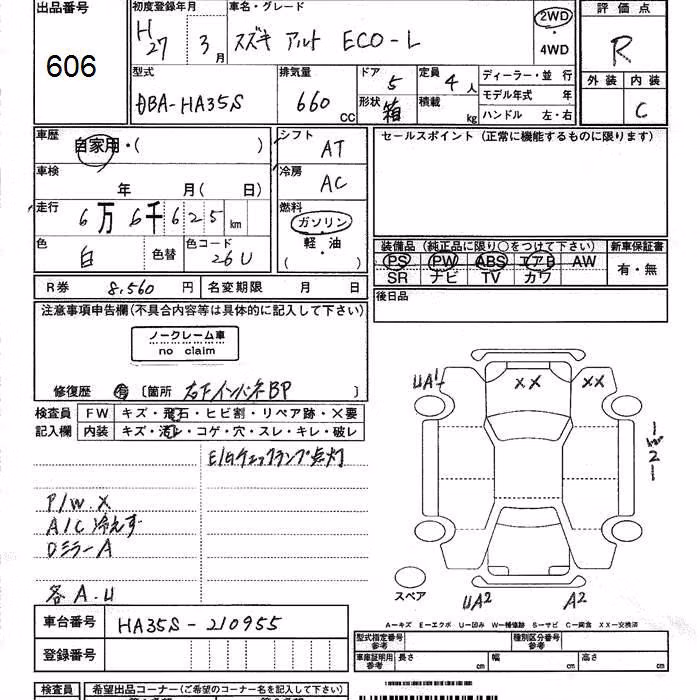 出品番号 初度登録年月 車名・グレード 評価点
606
H27 3月 スズキ アルト ECO-L 2WD R
4WD
型式 排気量 ドア 5 定員 4人 ディーラー・並 行 外装 内装
DBA-HA35S 660 CC 形状 箱 積載 kg モデル年式 年 C
ハンドル 左・右
車歴 自家用・( ) シフト AT セールスポイント (正常に機能するものに限ります)
車検 年 月( 日) 冷房 AC
走行 6万6千625km 燃料 ガソリン
軽・油
( )
色 白 色替 色コード 26U 装備品 (純正品に限り○をつけて下さい) 新車保証書
PS PW ABS エアB AW 有・無
SR ナビ TV カワ
R券 8,560 円 名変期限 月 日 後日品
注意事項申告欄(不具合内容等は具体的に記入して下さい)
ノークレーム車
no claim
修復歴 有 〔箇所 右Fインパネ BP 〕
検査員 FW キズ・飛石・ヒビ割・リペア跡・×要
記入欄 内装 キズ・汚レ・コゲ・穴・スレ・キレ・破レ
E/Gチェックランプ点灯
P/W.X
A/C 冷えず
Dミラー A
各 A.U
UA1 XX XX
2
スペア UA2 A2
A-キズ E-エクボ U-凹み W-補修跡 S-サビ C-腐食 XX-交換済
車台番号 HA35S-210955
登録番号
型式指定番号 参考 種別区分番号 参考
車庫証明用 参考 長さ cm 幅 cm 高さ cm
検査員 希望出品コーナー(ご希望のコーナー名を記入して下さい)